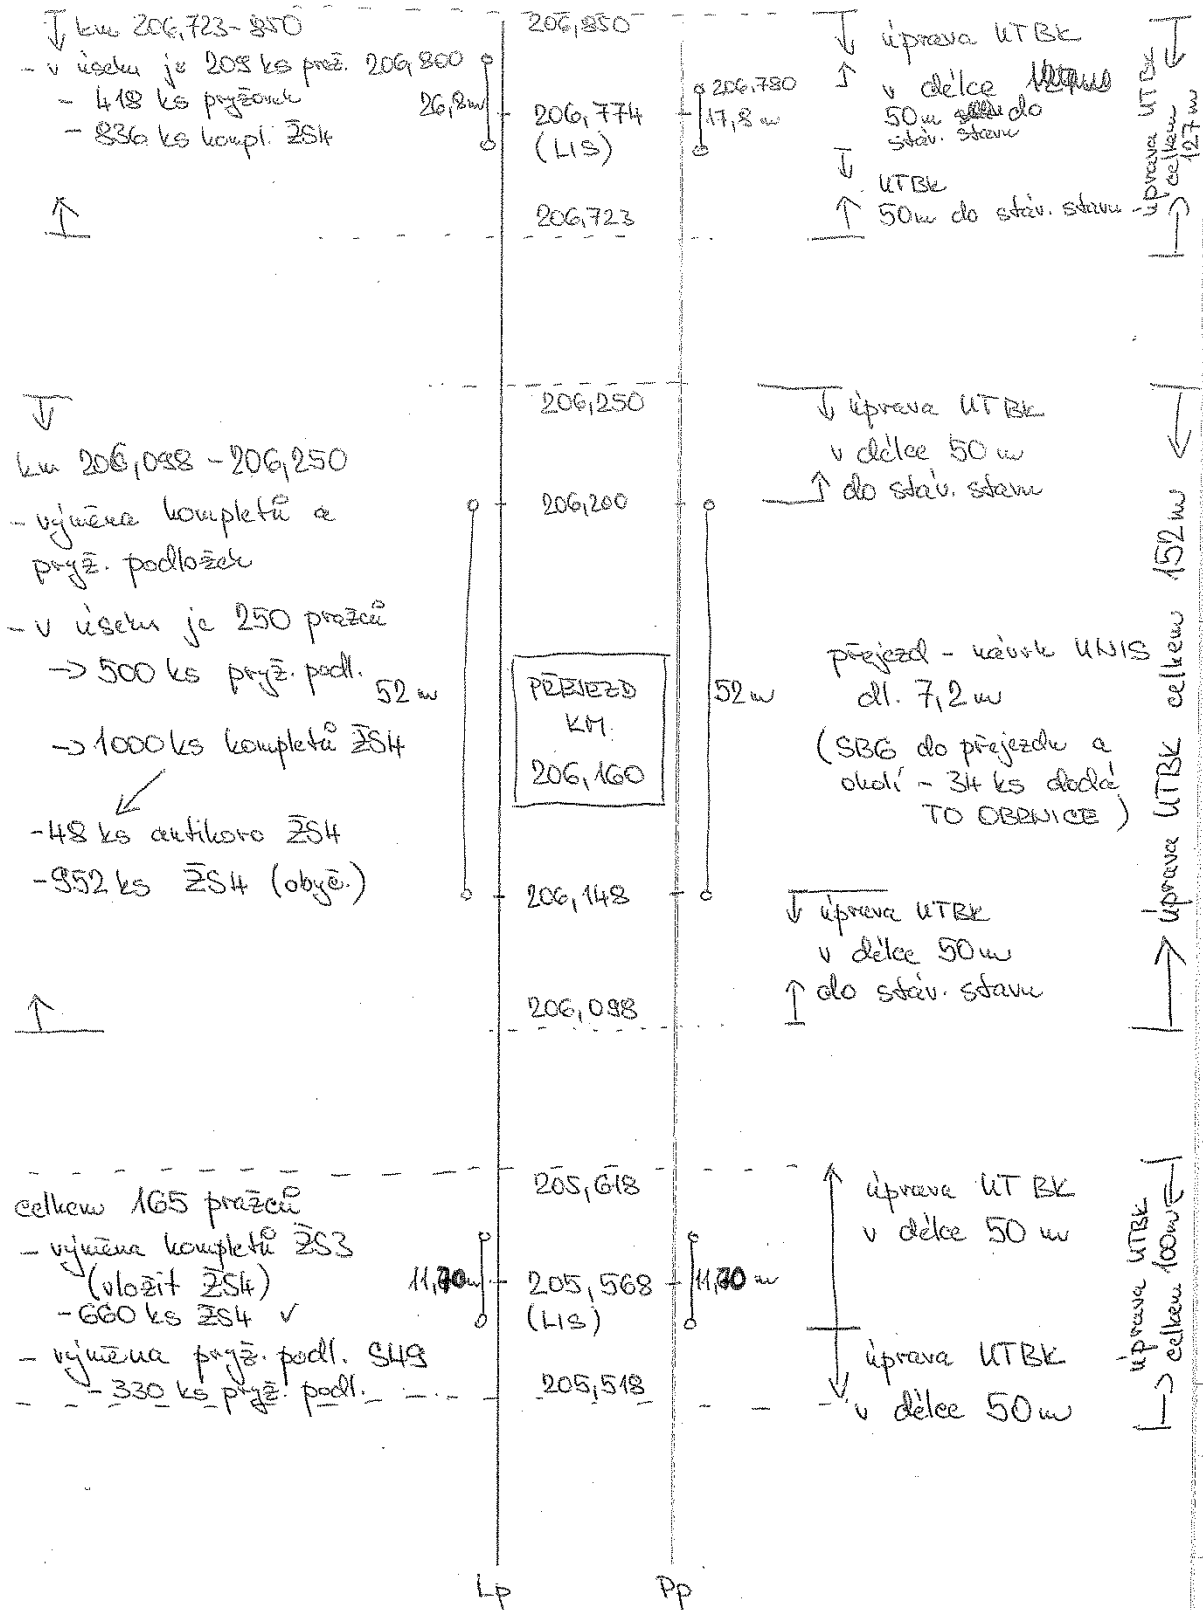 km 206,723-850
- v úseku je 209 ks praž.
- 418 ks pryžovek
- 836 ks kompl. ŽS4
206,800
26,8 m
206,850
206,774
(LIS)
206,723
206,780
17,8 m
úprava UTBK
v délce
50m do
stáv. stavu
UTBK
50m do stáv. stavu
úprava UTBK
celkem
127 m
km 206,098 - 206,250
- výměna kompletů a
pryž. podložek
- v úseku je 250 pražců
-> 500 ks pryž. podl.
-> 1000 ks kompletů ŽS4
-48 ks antikoro ŽS4
-952 ks ŽS4 (obyč.)
52 m
206,250
206,200
PŘEJEZD
KM.
206,160
206,148
206,098
52 m
úprava UTBK
v délce 50 m
do stáv. stavu
přejezd - návrh UNIS
dl. 7,2 m
(SBG do přejezdu a
okolí - 34 ks dodá
TO OBRNICE)
úprava UTBK
v délce 50 m
do stáv. stavu
úprava UTBK celkem 152 m
celkem 165 pražců
- výměna kompletů ŽS3
(vložit ŽS4)
- 660 ks ŽS4 ✓
- výměna pryž. podl. S49
- 330 ks pryž. podl.
11,70 m
205,618
205,568
(LIS)
205,518
11,70 m
úprava UTBK
v délce 50 m
úprava UTBK
v délce 50 m
úprava UTBK
celkem 100m
Lp
Pp